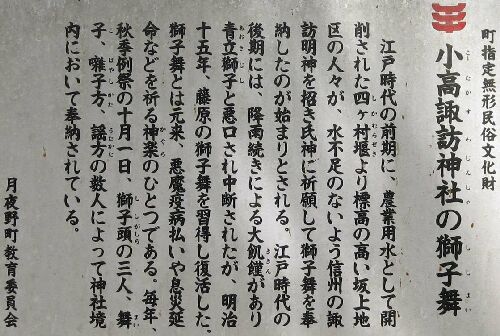 町指定無形民俗文化財
小高諏訪神社の獅子舞
江戸時代の前期に、農業用水として開
削された四ヶ村堰より標高の高い坂上地
区の人々が、水不足のないよう信州の諏
訪明神を招き氏神に祈願して獅子舞を奉
納したのが始まりとされる。江戸時代の
後期には、降雨続きによる大飢饉があり
青立獅子と悪口され中断されたが、明治
十五年、藤原の獅子舞を習得し復活した。
獅子舞とは元来、悪魔疫病払いや息災延
命などを祈る神楽のひとつである。毎年、
秋季例祭の十月一日、獅子頭の三人、舞
子、囃子方、謡方の数人によって神社境
内において奉納されている。
月夜野町教育委員会